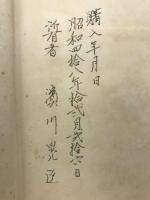 購入年月日
昭和四拾八年拾弐月弐拾六日
所有者
川